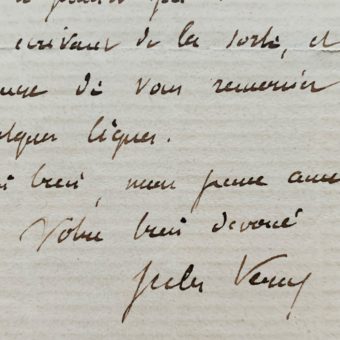 écrivant de la sorte, et
de vous remercier
lques lignes.
bien, mon jeune ami
Votre bien dévoué
Jules Verne